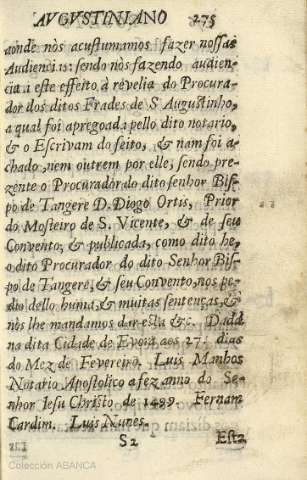 AVGVSTINIANO 275
aonde nòs acustumamos fazer nossas
Audencias: sendo nòs fazendo audien-
cia a este effeito, à revelia do Procura-
dor dos ditos Frades de S. Augustinho,
a qual foi apregoada pello dito notario,
& o Escrivam do feito, & nam foi a-
chado, nem outrem por elle, sendo pre-
zente o Procurador do dito senhor Bis-
po de Tangere D. Diogo Ortis, Prior
do Mosteiro de S. Vicente, & de seu
Convento; & publicada, como dito he,
o dito Procurador do dito Senhor Bis-
po de Tangere, & seu Convento, nos pe-
dio dello huma, & muitas sentenças, &
nòs lhe mandamos dar esta &c. Dada
na dita Cidade de Evora aos 27. dias
do Mez de Fevereiro. Luis Manhos
Notario Apostolico a fez anno do Se-
nhor Iesu Christo de 1499. Fernam
Cardim. Luis Nunes.
S2 Esta
Colección ABANCA